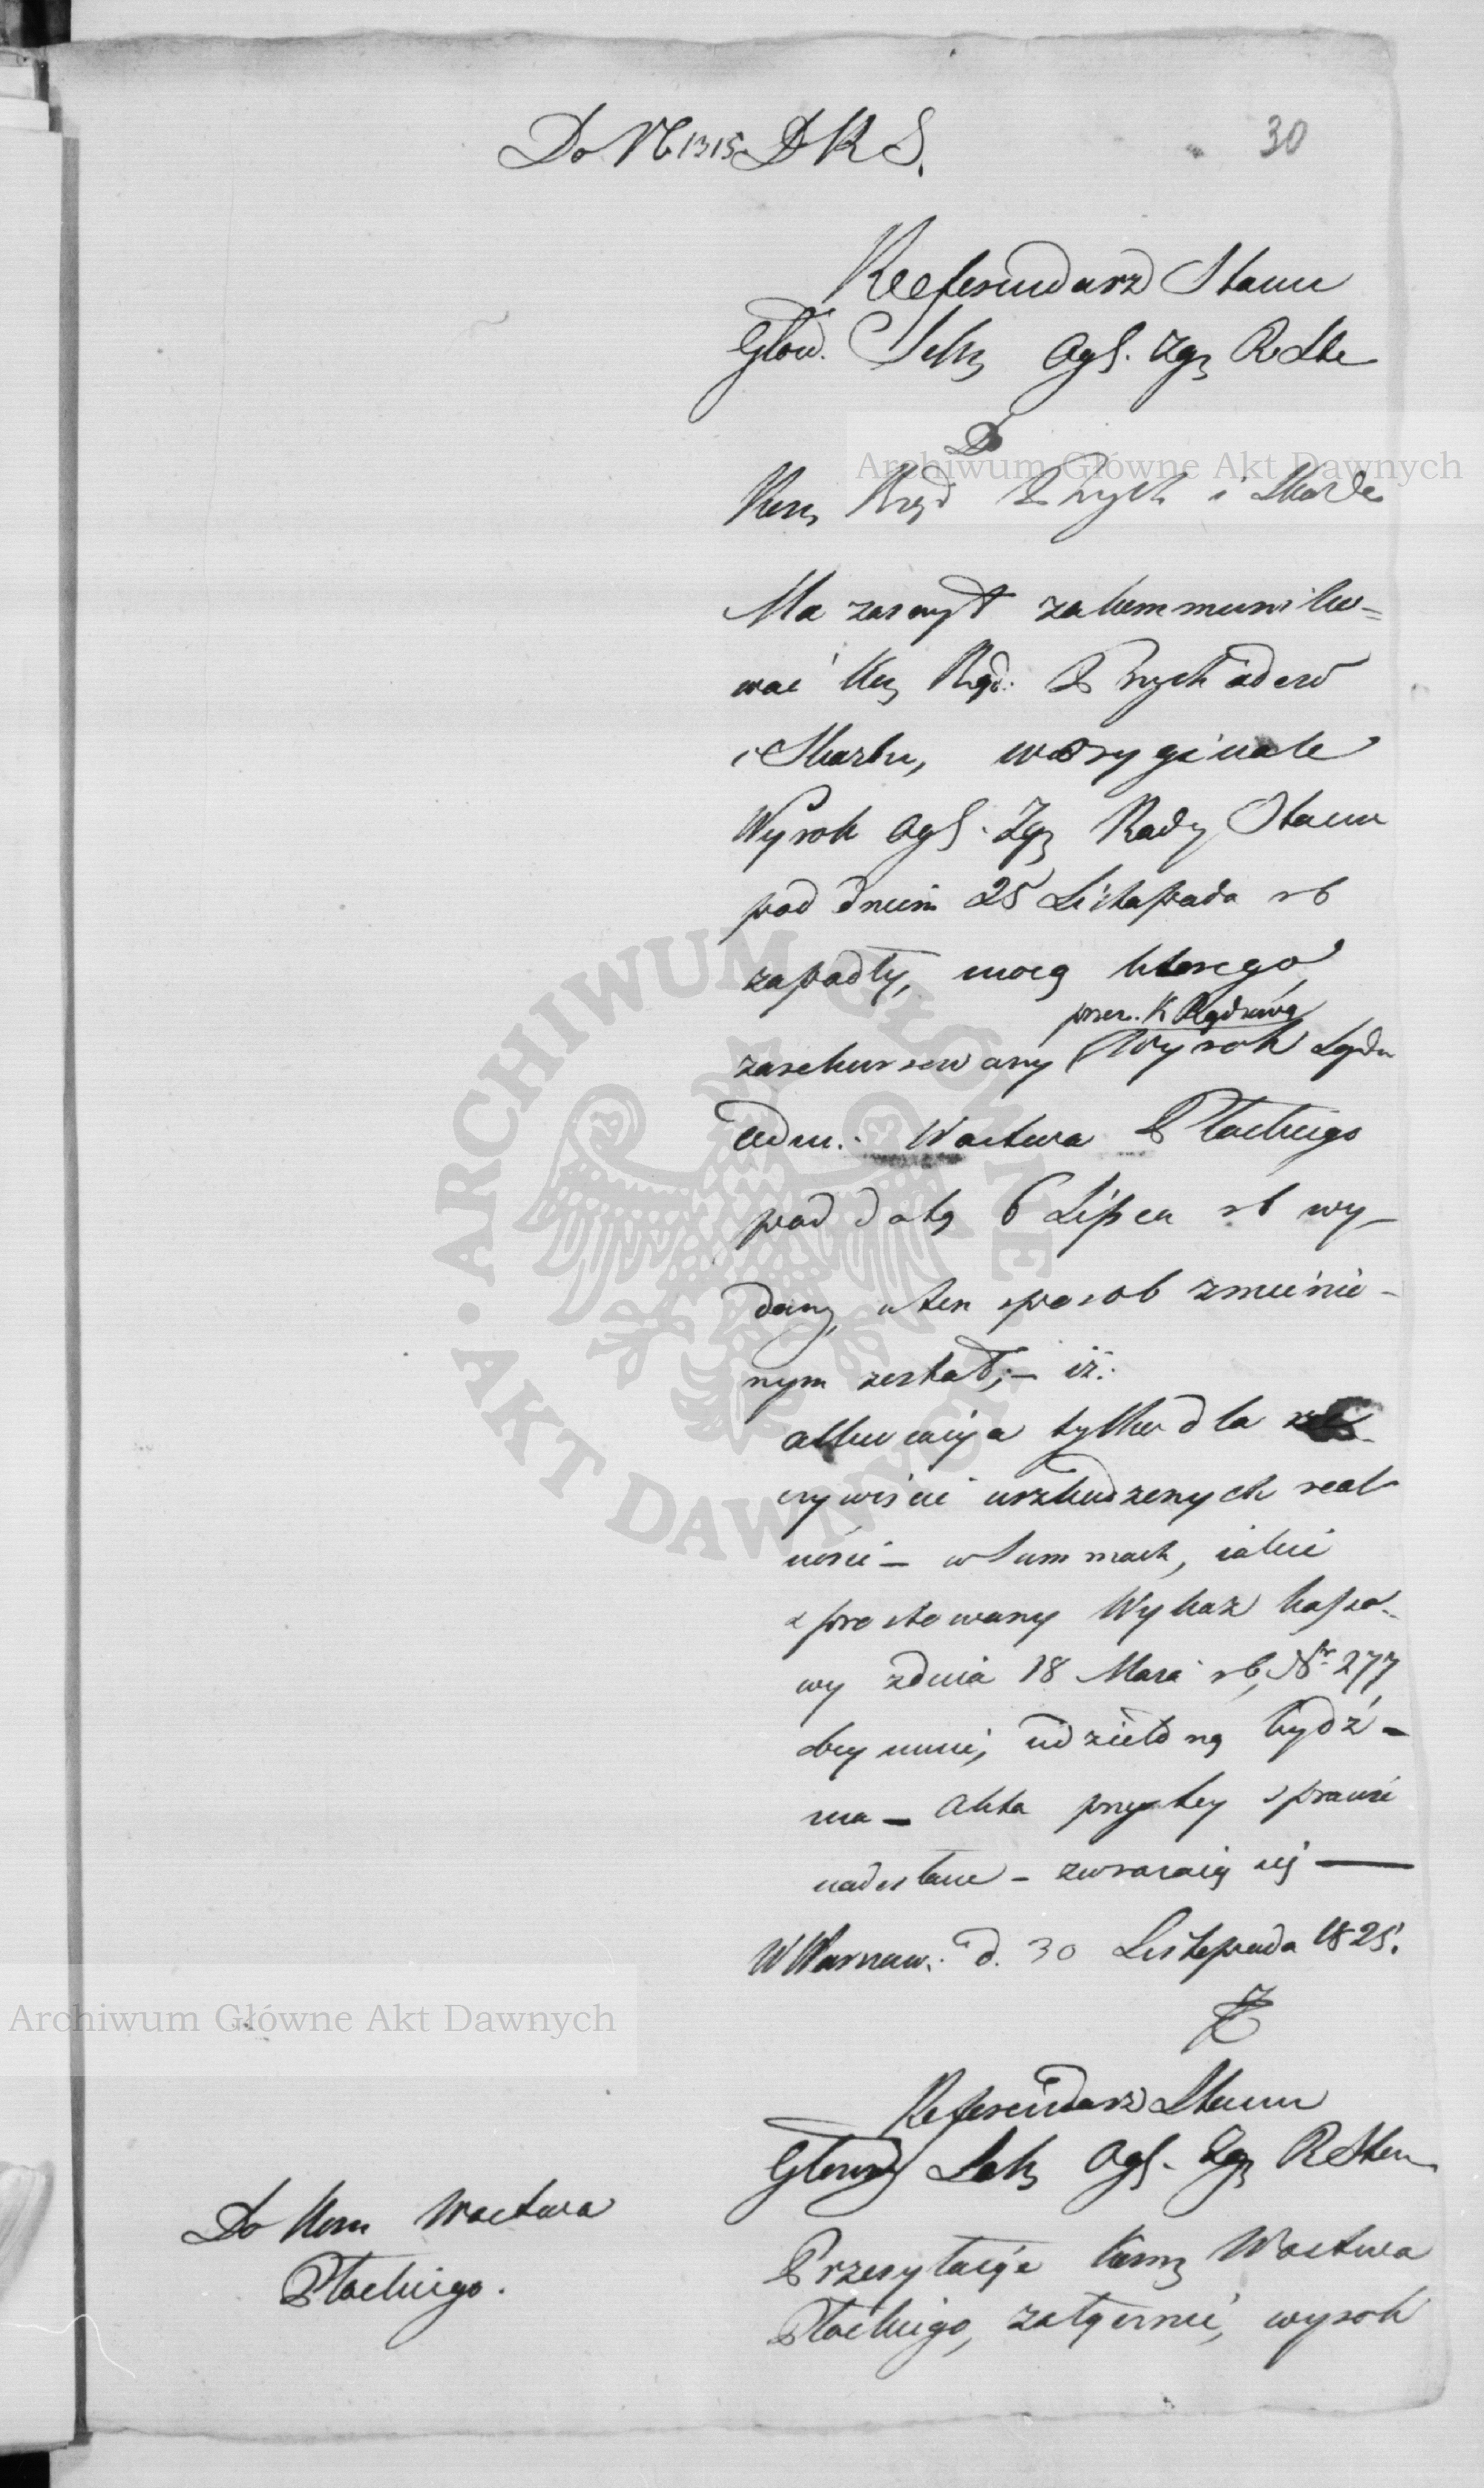 Do N 1315 D R S.
30
Referendarz Stanu
Głow. Sekr Ogl. Zgr R Stu
Do
Kom Rząd P i Skarbu
Ma zaszczyt zakommuniko=
wać Kom Rząd: Przychodów
i Skarbu, w oryginale
Wyrok Ogl. Zgr Rady Stanu
pod dniem 25 Listopada rb
zapadły, mocą którego
przez K Rządową
zarekursowany Wyrok Sądu
Adm. Wactwa Płockiego
pod datą 6 Lipca rb wy-
dany, w ten sposob zmienio-
nym został;- iż:
allewiacya tylko dla
czywiście uszkodzonych real
ności - w Summach, iakie
sprostowany Wykaz kasso-
wy z dnia 18 Maia rb, Nr 277
obeymuie, udzieloną bydź -
ma - Akta przy tey sprawie
nadesłane - zwracaią się —
W Warszaw: d. 30 Listopada 1825.
Referendarz Stanu
Głowny Sekr Ogl. Zgr R Stanu
Do Kom Wactwa
Płockiego.
Przesyłaiąc Kom Wactwa
Płockiego, załącznie, wyrok
Archiwum Główne Akt Dawnych
Archiwum Główne Akt Dawnych
ARCHIWUM GŁÓWNE AKT DAWNYCH